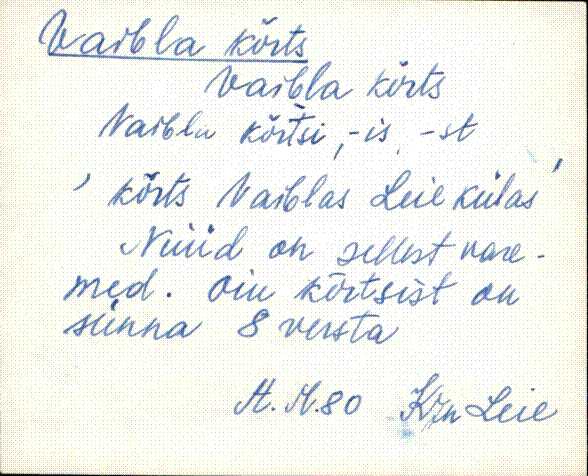 Vaibla kõrts
Vaibla kõrts
Vaibla kõrtsi, -is, -st
' kõrts Vaiblas Leie külas '
Nüüd on sellest vare-
med. Oiu kõrtsist on
siinna 8 versta
A. M. 80 Kzn Leie